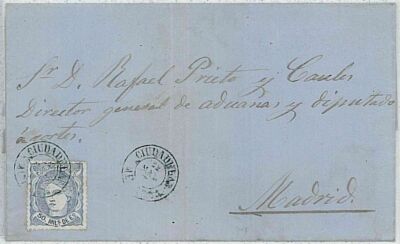 Sr. D. Rafael Prieto y Caules
Director general de aduanas y diputado
á cortes.
CIUDADELA
CIUDADELA
50 MILS DE E.
Madrid.